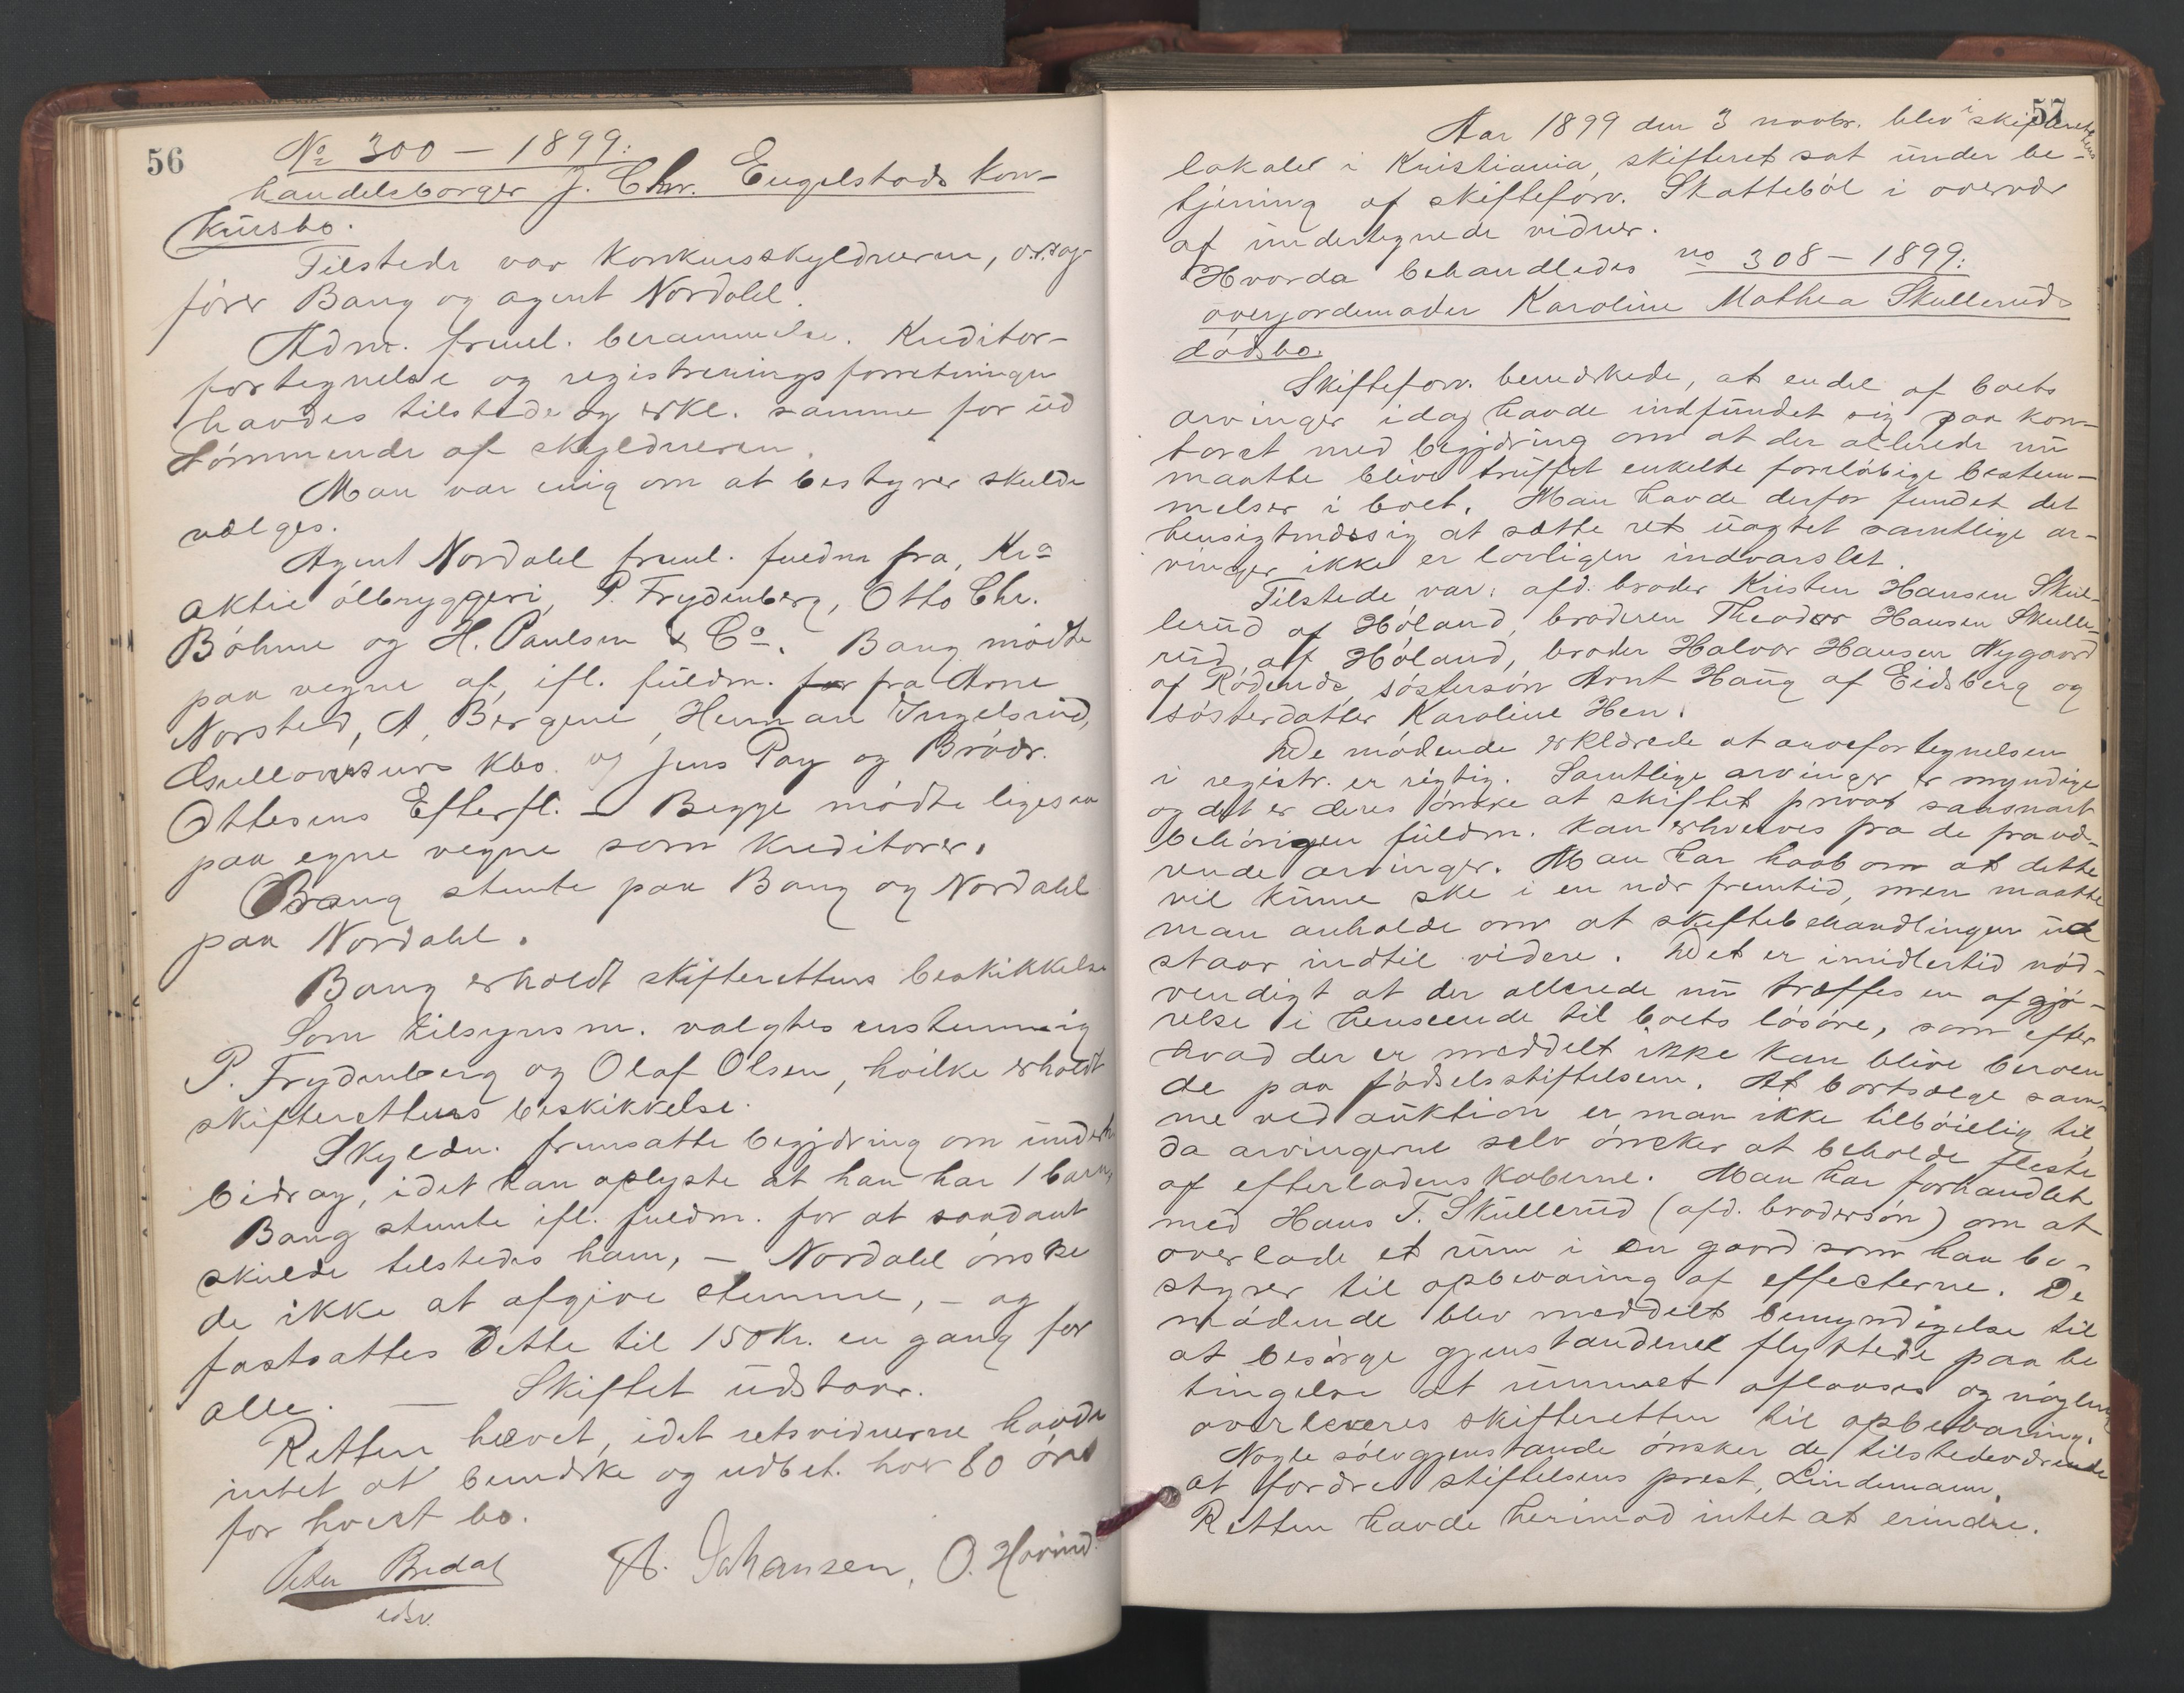 56
No 300 – 1899:
handelsborger J. Chr. Engelstads kon-
kursbo.
Tilstede var konkursskyldneren, o.r.sag-
fører Bang og agent Nordahl.
Adm. freml. berammelse. Kreditor-
fortegnelse og registreringsforretningen
havdes tilstede og erkl. samme for ud
tømmende af skyldneren.
Man var enig om at bestyrer skulde
vælges.
Agent Nordahl freml. fuldm fra, Kra
aktie ølbryggeri, P. Frydenberg, Otto Chr.
Böhme og H. Paulsen & Co. Bang mødte
paa vegne af, ifl. fuldm. for fra Arne
Norsted, A. Bergene, Herman Ingelsrud,
kbo. og Jens Pay og Brødr.
Ottesens Efterfl. – Begge mødte ligesaa
paa egne vegne som kreditorer.
Bang stemte paa Bang og Nordahl
paa Nordahl.
Bang erholdt skifterettens beskikkelse
Som tilsynsm. valgtes enstemmig
P. Frydenberg og Olaf Olsen, hvilke erholdt
skifterettens beskikkelse.
Skyldn. fremsatte begjæring om underh
bidrag, idet han oplyste at han har 1 barn,
Bang stemte ifl. fuldm. for at saadant
skulde tilstedes ham, – Nordahl ønske
de ikke at afgive stemme, – og
fastsattes dette til 150 Kr. en gang for
alle. – Skiftet udstaar.
Retten hævet, idet retsvidnerne havde
intet at bemærke og udbet. hver 80 øre
for hvert bo.
Peter Bredal A. Johansen, O. Hovind.
edsv.
57
Aar 1899 den 3 novbr. blev i skifterettens
lokale i Kristiania, skifteret sat under be-
tjening af skifteforv. Skattebøl i overvær
af undertegnede vidner.
Hvorda behandledes no 308 – 1899:
overjordemoder Karoline Mathea Skulleruds
dødsbo.
Skifteforv. bemærkede, at endel af boets
arvinger idag havde indfundet sig paa kon-
toret med begjæring om at der allerede nu
maatte blive truffet enkelte foreløbige bestem-
melser i boet. Man havde derfor fundet det
hensigtmæssig at sætte ret uagtet samtlige ar-
vinger ikke er lovligen indvarslet.
Tilstede var: afd. broder Kristen Hansen Skul-
lerud af Høland, broderen Theodor Hansen Skulle-
rud, af Høland, broder Halvor Hansen Nygaard
af Rødenæs, søstersøn Arnt Haug af Eidsberg og
søsterdatter Karoline Hen.
De mødende erklærede at arvefortegnelsen
i registr. er rigtig. Samtlige arvinger er myndige
og det er deres ønske at skiftet privat saasnart
behørigen fuldm. kan erhverves fra de fravæ-
rende arvinger. Man har haab om at dette
vil kunne ske i en nær fremtid, men maatte
man anholde om at skiftebehandlingen ud
staar indtil videre. Det er imidlertid nød-
vendigt at der allerede nu træffes en afgjø-
relse i henseende til boets løsøre, som efter
hvad der er meddelt ikke kan blive beroen
de paa fødselsstiftelsen. At bortsælge sam-
me ved auktion er man ikke tilbøielig til,
da arvingerne selv ønsker at beholde fleste
af efterladenskaberne. Man har forhandlet
med Hans T. Skullerud (afd. brodersøn) om at
overlade et rum i en gaard som han be-
styrer til opbevaring af effecterne. De
mødende blev meddelt bemyndigelse til
at besørge gjenstandene flyttede paa be
tingelse at rummet aflaases og nøglen
overleveres skifteretten til opbevaring.
Nogle sølvgjenstande ønsker de tilstedeværende
at fordre stiftelsens prest, Lindemann.
Retten havde herimod intet at erindre.